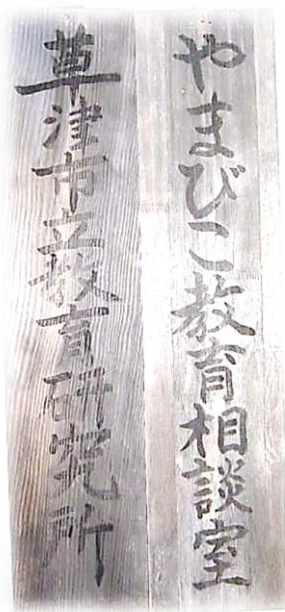 やまびこ教育相談室
草津市立教育研究所